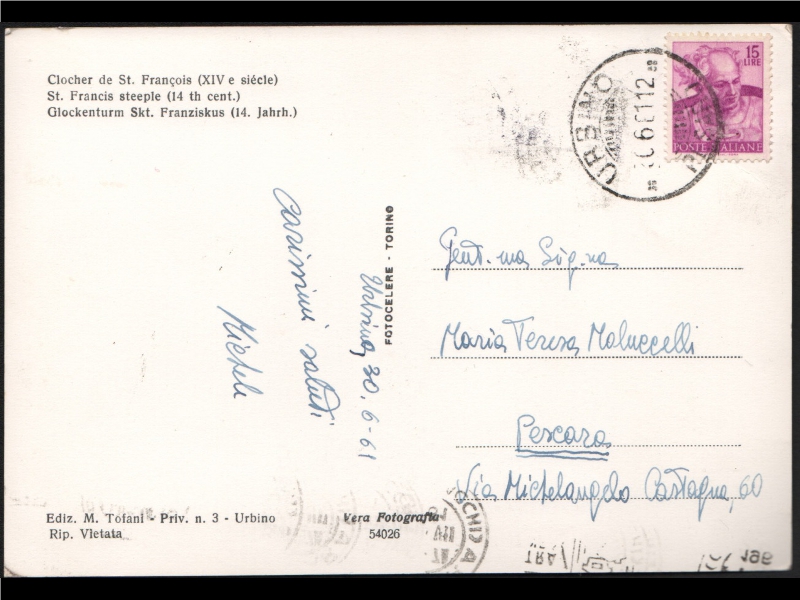 Clocher de St. François (XIV e siécle)
St. Francis steeple (14 th cent.)
Glockenturm Skt. Franziskus (14. Jahrh.)
15
LIRE
POSTE ITALIANE
URBINO
FOTOCELERE - TORINO
Urbino, 30-6-61
Carissimi saluti
Michele
Gent.ma Sig.na
Maria Teresa Maluccelli
Pescara
Via Michelangelo Castagna, 60
Ediz. M. Tofani - Priv. n. 3 - Urbino
Rip. Vietata
Vera Fotografia
54026